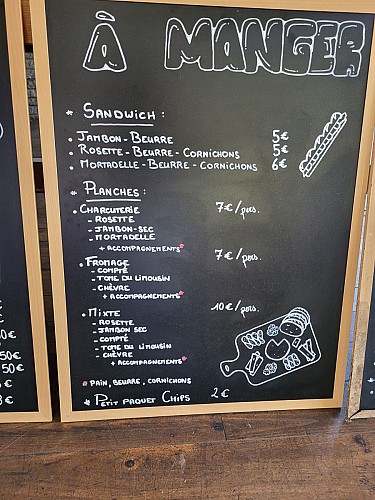 À MANGER
* SANDWICH :
• JAMBON - BEURRE 5€
• ROSETTE - BEURRE - CORNICHONS 5€
• MORTADELLE - BEURRE - CORNICHONS 6€
* PLANCHES :
• CHARCUTERIE 7€/pers.
- ROSETTE
- JAMBON-SEC
- MORTADELLE
+ ACCOMPAGNEMENTS*
• FROMAGE 7€/pers.
- COMPTÉ
- TOME DU LIMOUSIN
- CHÈVRE
+ ACCOMPAGNEMENTS*
• MIXTE 10€/pers.
- ROSETTE
- JAMBON SEC
- COMPTÉ
- TOME DU LIMOUSIN
- CHÈVRE
+ ACCOMPAGNEMENTS*
* PAIN, BEURRE, CORNICHONS
* PETIT PAQUET CHIPS 2€